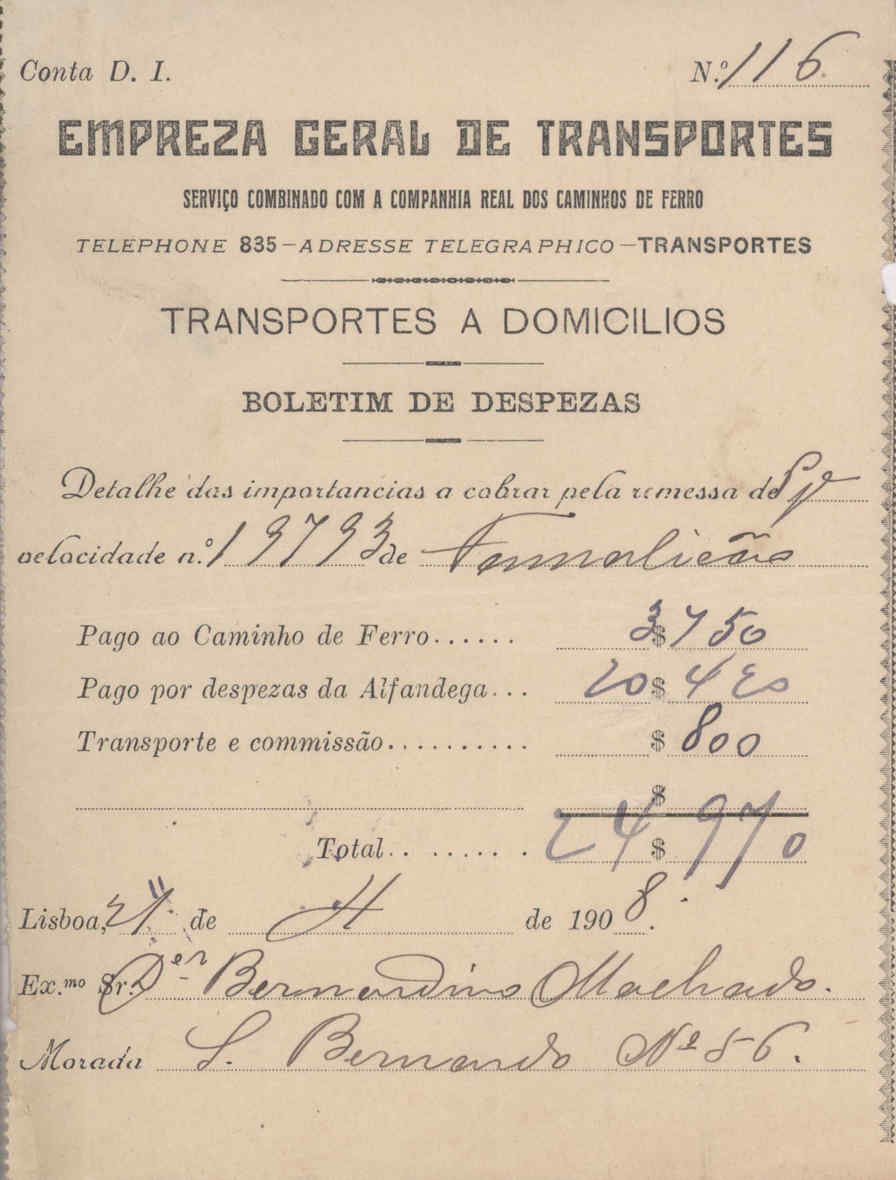 Conta D. I. N.º 116
EMPREZA GERAL DE TRANSPORTES
SERVIÇO COMBINADO COM A COMPANHIA REAL DOS CAMINHOS DE FERRO
TELEPHONE 835—ADRESSE TELEGRAPHICO—TRANSPORTES
TRANSPORTES A DOMICILIOS
BOLETIM DE DESPEZAS
Detalhe das importancias a cobrar pela remessa de
velocidade n.º 19793 de Famalicão
Pago ao Caminho de Ferro...... 3$750
Pago por despezas da Alfandega... 20$420
Transporte e commissão.......... $800
$
Total.. ....... 24$970
Lisboa, 24 de 4 de 1908.
Ex.mo Sr. Bernardino Machado.
Morada S. Bernardo Nº 56.